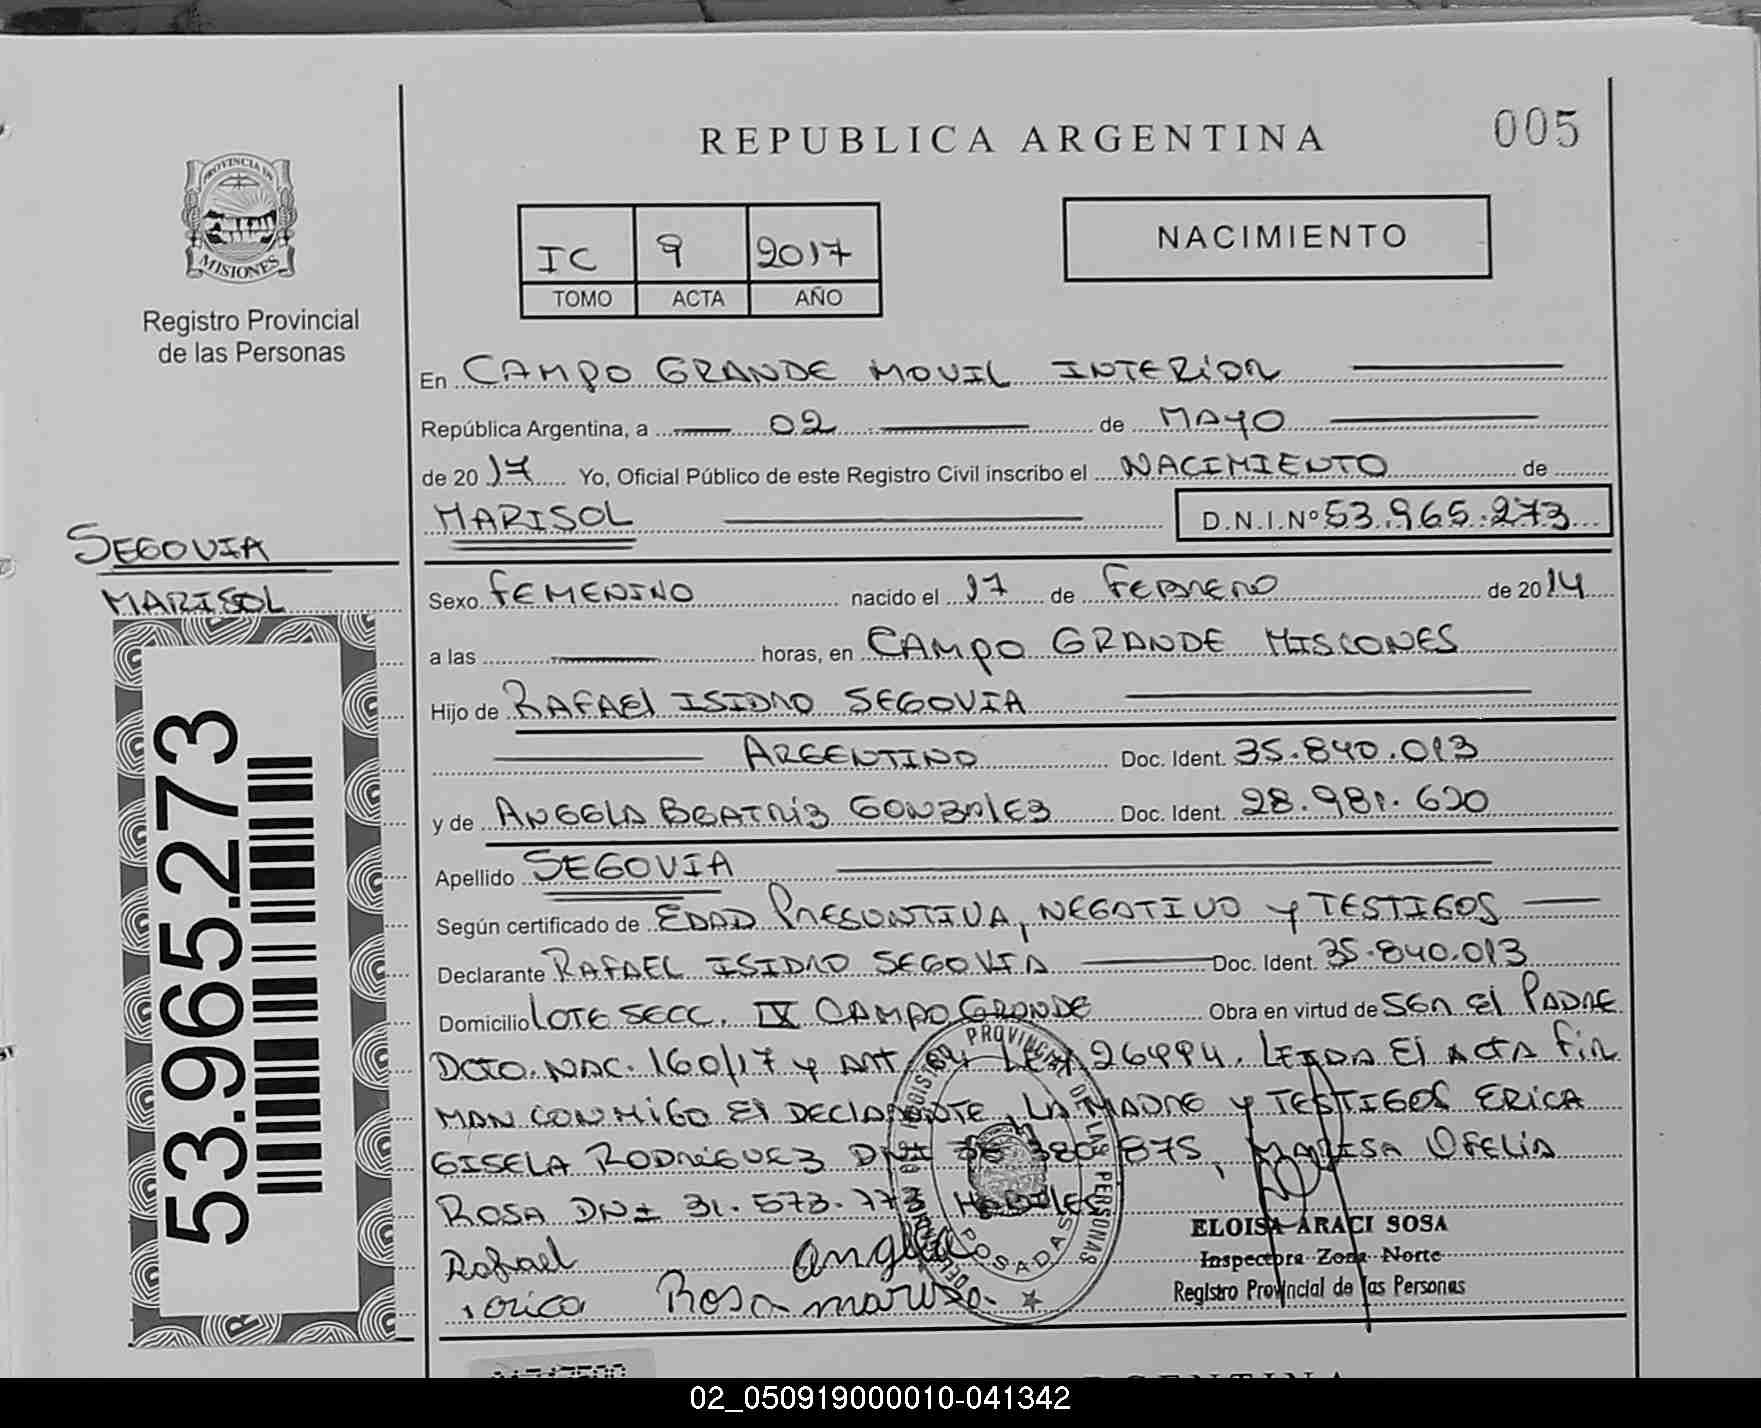 REPUBLICA ARGENTINA
005
PROVINCIA DE MISIONES
Registro Provincial
de las Personas
IC 9 2017
TOMO ACTA AÑO
NACIMIENTO
En CAMPO GRANDE MOVIL INTERIOR
República Argentina, a 02 de MAYO
de 2017 Yo, Oficial Público de este Registro Civil inscribo el NACIMIENTO de
MARISOL D.N.I.Nº 53.965.273
SEGOVIA
MARISOL
53.965.273
Sexo FEMENINO nacido el 17 de FEBRERO de 2014
a las horas, en CAMPO GRANDE MISIONES
Hijo de RAFAEl ISIDRO SEGOVIA
ARGENTINO Doc. Ident. 35.840.013
y de ANGELA BEATRíz GONZALEZ Doc. Ident. 28.981.620
Apellido SEGOVIA
Según certificado de EDAD PRESUNTIVA, NEGATIVO y TESTIGOS
Declarante RAFAEL ISIDRO SEGOVIA Doc. Ident. 35.840.013
Domicilio LOTE SECC. IX CAMPO GRANDE Obra en virtud de SER El PADRE
DCTO. NAC. 160/17 y ART. 64 LEY 26994. LEIDA El ACTA FiR
MAN CONMiGO El DEClARANTE, LA MADRE y TESTIGOS ERiCA
GISELA RODRiGUEZ DNI 380 875, MARISA OFELIA
ROSA DNI 31.573.773 HABILES
Rafael Angela
erica Rosa marisa
REGISTRO PROVINCIAL DE LAS PERSONAS
POSADAS
ELOISA ARACI SOSA
Inspectora Zona Norte
Registro Provincial de las Personas
02_050919000010-041342